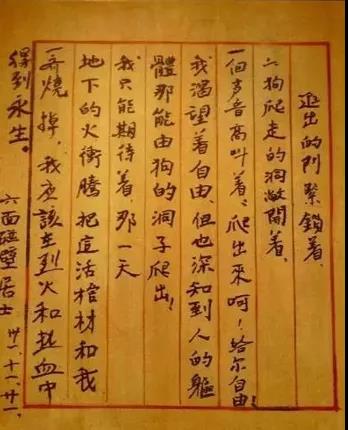 出的門緊鎖着、
狗爬走的洞敞開着、
一個声音高叫着、爬出來呵！给尔自由！
我渴望着自由、但也深知到人的軀
體那能由狗的洞子爬出！
我只能期待着、那一天
地下的火衝騰把這活棺材和我
一齊燒掉、我应該在烈火和热血中
得到永生。
六面碰壁居士 卅一、十一、廿一、